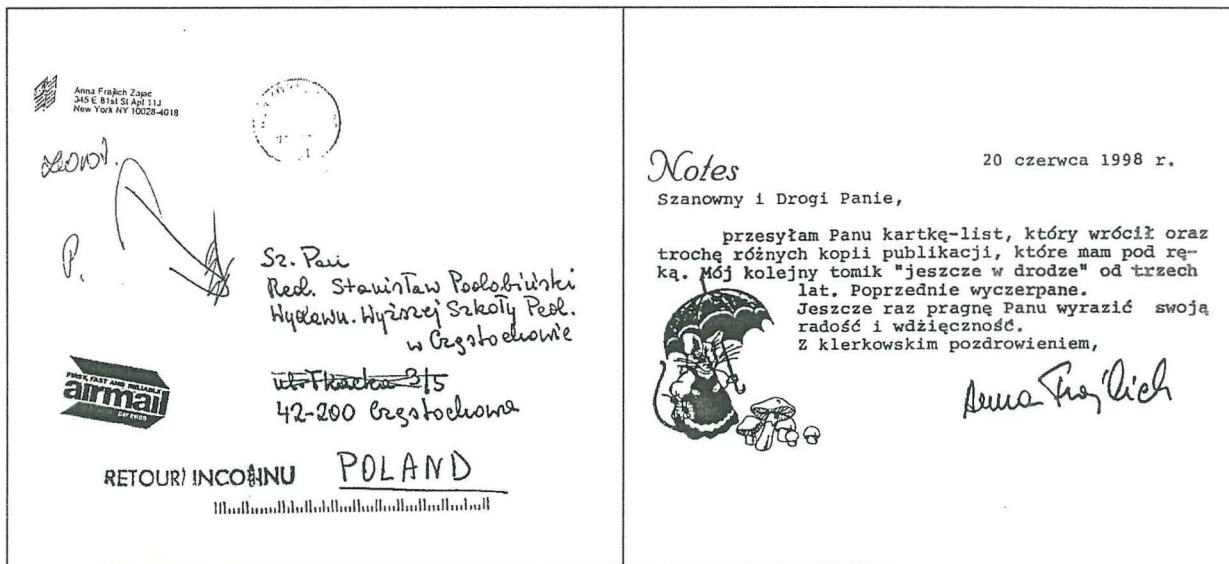 Anna Frajlich Zajac
345 E 81st St Apt 11J
New York NY 10028-4018
P.
Sz. Pan
Red. Stanisław Podobiński
Wydawn. Wyższej Szkoły Ped.
w Częstochowie
ul. Tkacka 3/5
42-200 Częstochowa
FIRST, FAST AND RELIABLE
airmail
PAR AVION
RETOUR/ INCONNU
POLAND
Notes
20 czerwca 1998 r.
Szanowny i Drogi Panie,
przesyłam Panu kartkę-list, który wrócił oraz
trochę różnych kopii publikacji, które mam pod rę-
ką. Mój kolejny tomik "jeszcze w drodze" od trzech
lat. Poprzednie wyczerpane.
Jeszcze raz pragnę Panu wyrazić swoją
radość i wdzięczność.
Z klerkowskim pozdrowieniem,
Anna Frajlich